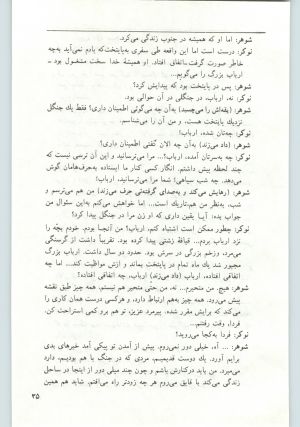 شوهر: اما او که همیشه در جنوب زندگی می‌کرد.
نوکر: درست است اما این واقعه طی سفری به‌پایتخت‌که یادم نمی‌آید به‌چه
خاطر صورت گرفت- اتفاق افتاد. او همیشهٔ خدا سخت مشغول بود ـ
ارباب بزرگ را می‌گویم...
شوهر: پس در پایتخت بود که پیدایش کرد؟
نوکر: نه، ارباب. در جنگلی در آن حوالی بود.
شوهر: (یقه‌اش را می‌چسبد) به‌آن چه می‌گوئی اطمینان داری؟ فقط یك جنگل
نزدیك پایتخت هست، و من آن را می‌شناسم.
نوکر: چه‌تان شده، ارباب!
شوهر: (داد می‌زند) به‌آن چه الان گفتی اطمینان داری؟
نوکر: چه به‌سرتان آمده، ارباب؟... مرا می‌ترسانید و این آن ترسی نیست که
چند لحظه پیش داشتم. انگار کسی کنار ما ایستاده به‌حرف‌هامان گوش
می‌دهد. چه شب سیاهی! شما مرا می‌ترسانید، ارباب!
شوهر: (رهایش می‌کند و به‌صدای گرفته‌ئی حرف می‌زند) من هم می‌ترسم و
شب، به‌نظر من هم، تاریك است... اما خواهش می‌کنم به‌این سئوال من
جواب بده: آیا یقین داری که او زن مرا در جنگل پیدا کرد؟
نوکر: چطور ممکن است اشتباه کنم، ارباب؟ من آنجا بودم. خودم بچّه را
نزد ارباب بردم... قیافهٔ زشتی پیدا کرده بود. تقریباً داشت از گرسنگی
می‌مرد، وزخم بزرگی در سرش بود. حدود دو سال داشت. ارباب بزرگ
مجبور شد یك ماه تمام در پایتخت بماند و ازش مواظبت کند... اما چه
اتفاقی افتاده، ارباب (داد می‌زند) ارباب، چه اتفاقی افتاده؟
شوهر: هیچ. من متحیرم... نه، من حتی متحیر هم نیستم. همه چیز طبق نقشه
پیش می‌رود. همه چیز به‌هم ارتباط دارد، و هرکسی درست همان کاری را
می‌کند که برایش مقرر شده. پیرمرد عزیز، تو هم برو کمی استراحت کن.
فردا، وقت رفتنم...
نوکر: فردا به‌کجا می‌روید؟
شوهر: ... آه، خیلی دور نمی‌روم. پیش از آمدن تو پیکی آمد خبرهای بدی
برایم آورد. یك دوست قدیمیم، مردی که در جنگ با هم بودیم، دارد
می‌میرد. من باید درکنارش باشم و چون چند میلی دور از اینجا در ساحل
زندگی می‌کند با قایق می‌روم هر چه زودتر راه می‌افتم. شاید هم همین
۳۵